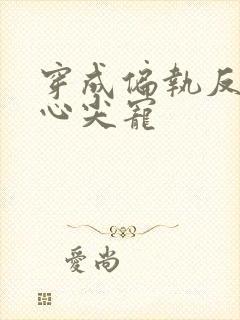 穿成偏執反
心尖寵
愛尚